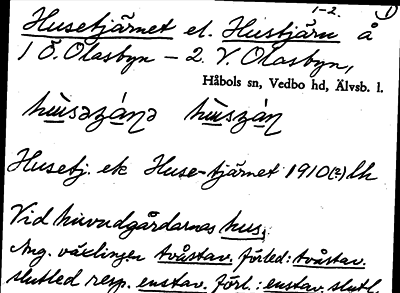 1-2. 1
Husetjärnet el. Hustjärn å
1 Ö. Olasbyn – 2. V. Olasbyn,
Håbols sn, Vedbo hd, Älvsb. l.
Husetj. ek Huse-tjärnet 1910(2) lh
Vid huvudgårdarnas hus.
Ang. växlingen tvåstav. förled: tvåstav.
slutled resp. enstav. förl.: enstav. slutl.